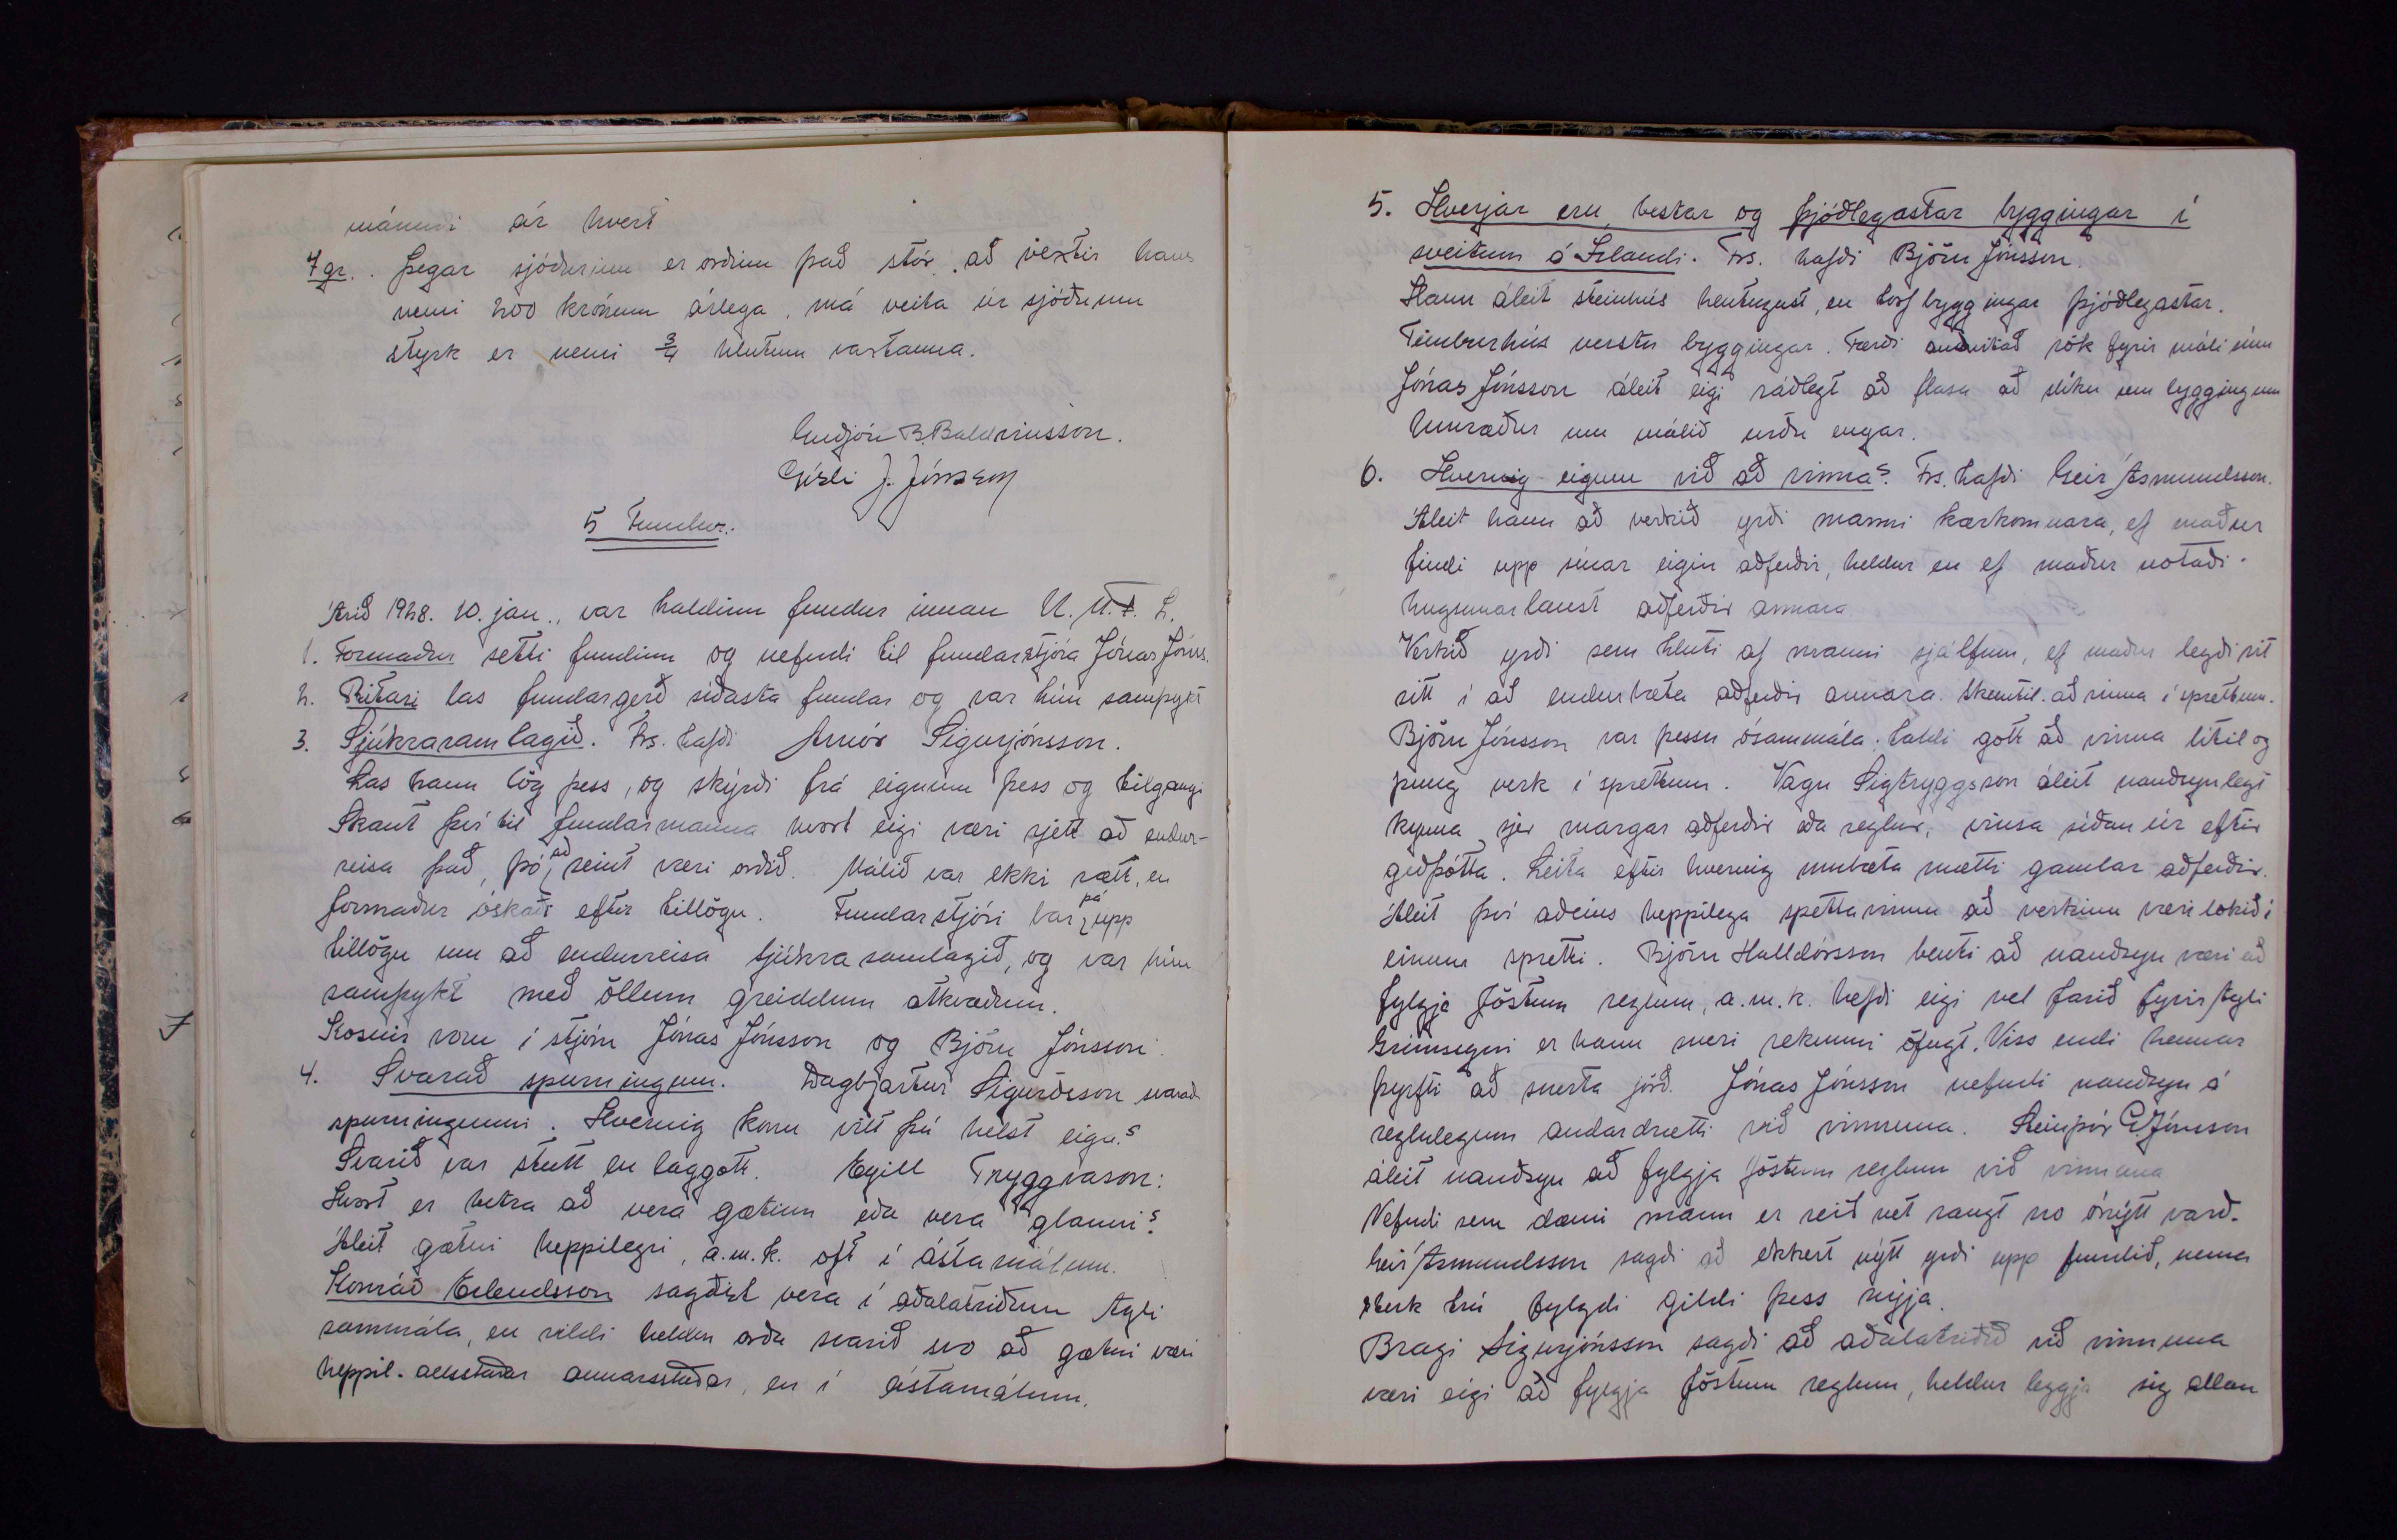 mánuði ár hvert
7 gr. Þegar sjóðurinn er orðinn það stór, að vextir hans
nemi 200 krónum árlega, má veita úr sjóðnum
styrk er nemi 3/4 hlutum vaxtanna.
Guðjón B. Baldvinsson.
Gísli J. Jónsson
5 Fundur.
Árið 1928. 10. jan., var haldinn fundur innan U.M.F. L.
1. Formaður setti fundinn og nefndi til fundarstjóra Jónas Jónss.
2. Ritari las fundargerð síðasta fundar og var hún samþykt
3. Sjúkraramlagið. Frs. hafði Arnór Sigurjónsson.
Las hann lög þess, og skýrði frá eignum þess og tilgangi
Skaut því til fundarmanna hvort eigi væri rjett að endur-
reisa það, þó að seint væri orðið. Málið var ekki rætt, en
formaður óskaði eftir tillögu. Fundarstjóri bar þá upp
tillögu um að endurreisa sjúkrasamlagið, og var hún
samþykt með öllum greiddum atkvæðum.
Kosnir voru í stjórn Jónas Jónsson og Björn Jónsson.
4. Svarað spurningum. Dagbjartur Sigurðsson svarað
spurningunni. Hvernig konu vilt þú helst eiga?
Svarið var stutt en laggott. Egill Tryggvason:
Hvort er betra að vera gætinn eða vera glanni?
Áleit gætni heppilegri, a.m.k. oft í ástamálum.
Konráð Erlendsson sagðist vera í aðalatriðum Agli
sammála, en vildi heldur orða svarið svo að gætni væri
heppil. allsstaðar annarsstaðar, en í ástamálum.
5. Hverjar eru bestar og þjóðlegastar byggingar í
sveitum á Íslandi. Frs. hafði Björn Jónsson.
Hann áleit steinhús hentugust, en torfbyggingar þjóðlegastar.
Timburhús verstu byggingar. Færði rök fyrir máli sínu
Jónas Jónsson áleit eigi ráðlegt að flasa að slíku sem byggingum
Umræður um málið urðu engar.
6. Hvernig eigum við að vinna? Frs. hafði Geir Ásmundsson.
Áleit hann að verkið yrði manni kærkomnara, ef maður
findi upp sínar eigin aðferðir, heldur en ef maður notaði
hugsunarlaust aðferðir annara
Verkið yrði sem hluti af manni sjálfum, ef maður legði vit
sitt í að endurbæta aðferðir annara. Skemtil. að vinna í sprettum.
Björn Jónsson var þessu ósammála. Taldi gott að vinna lítil og
þung verk í sprettum. Vagn Sigtryggsson áleit nauðsynlegt
kynna sjer margar aðferðir eða reglur, vinsa síðan úr eftir
geðþótta. Leita eftir hvernig umbæta mætti gamlar aðferðir.
Áleit því aðeins heppilega sprettavinnu að verkinu væri lokið í
einum spretti. Björn Halldórsson benti að nauðsyn væri að
fylgja föstum reglum, a.m.k. hefði eigi vel farið fyrir Agli
Grímsegni er hann sneri rekunni öfugt. Viss endi hennar
þyrfti að snerta jörð. Jónas Jónsson nefndi nauðsyn á
reglulegum andardrætti við vinnuna. Steinþór G. Jónsson
áleit nauðsyn að fylgja föstum reglum við vinnuna
Nefndi sem dæmi mann er reið net rangt svo ónýtt varð.
Geir Ásmundsson sagði að ekkert nýtt yrði upp fundið, nema
sterk trú fylgdi gildi þess nýja.
Bragi Sigurjónsson sagði að aðalatriðið við vinnuna
væri eigi að fylgja föstum reglum, heldur leggja sig allan